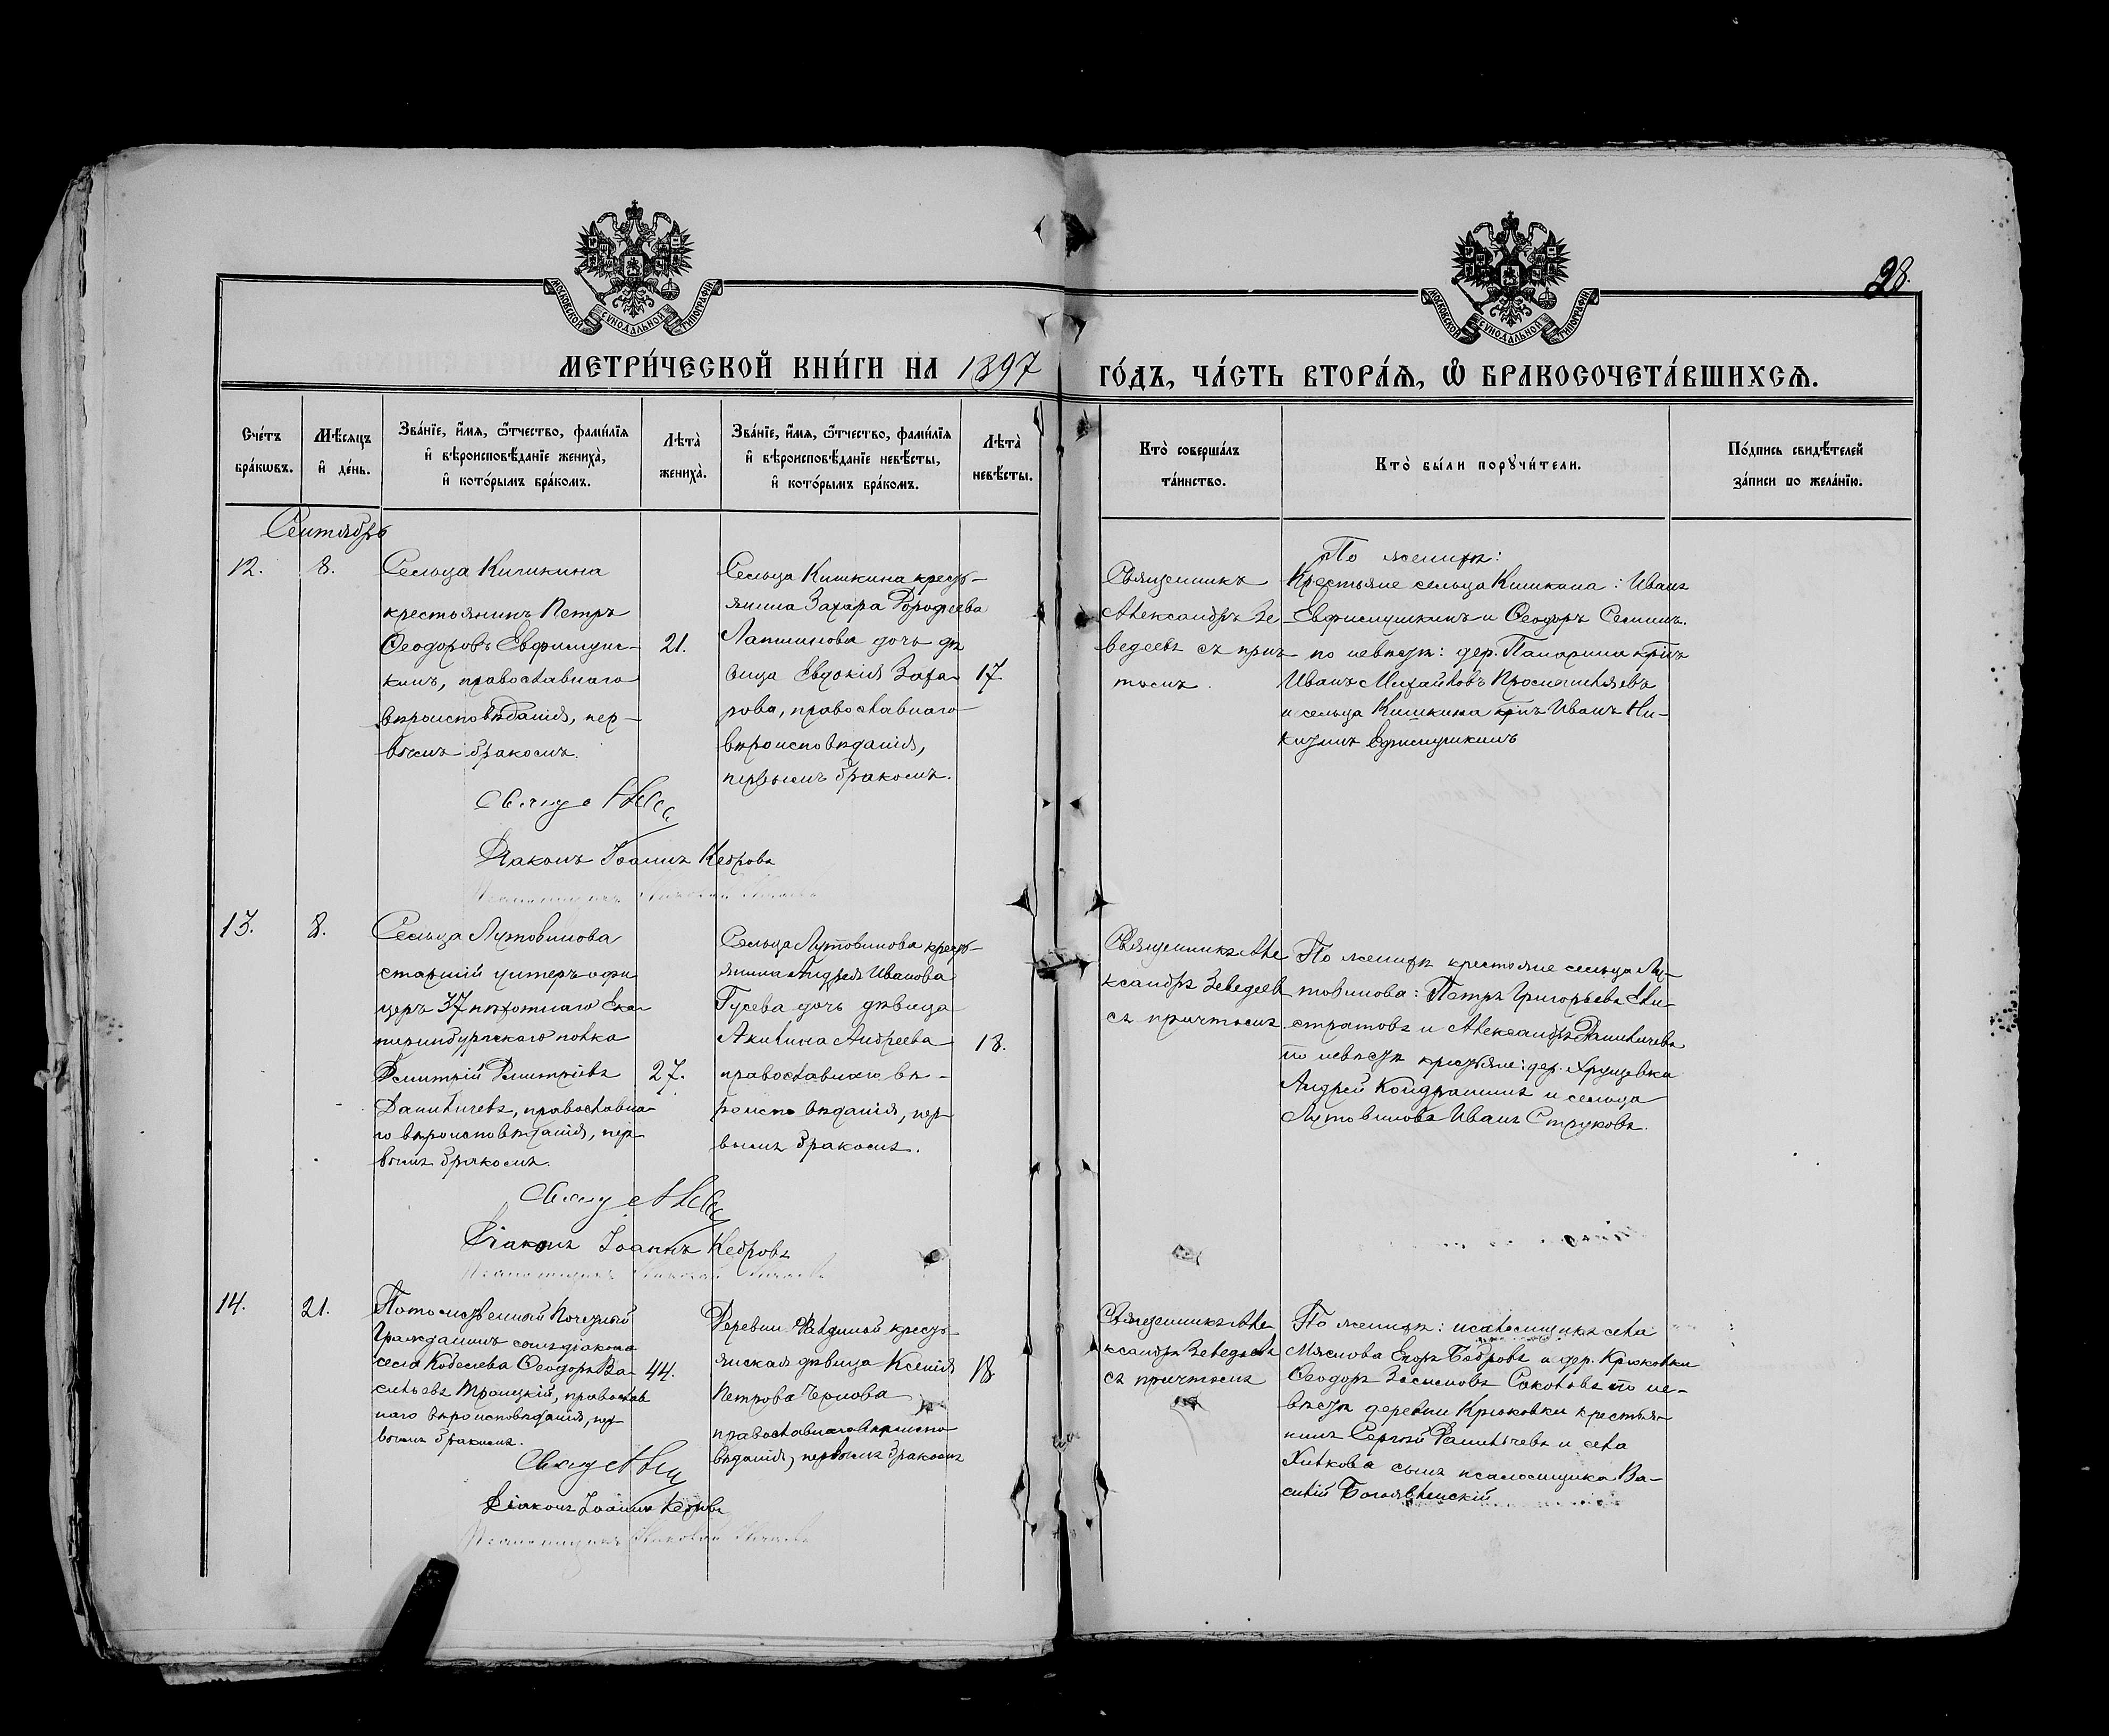 МОСКОВСКОЙ СУНОДАЛЬНОЙ ТИПОГРАФІИ
МОСКОВСКОЙ СУНОДАЛЬНОЙ ТИПОГРАФІИ
28.
МЕТРИ́ЧЕСКОЙ КНИ́ГИ НА 1897
ГО́ДЪ, ЧА́СТЬ ВТОРА́Ѧ, Ѡ҆ БРАКОСОЧЕТА́ВШИХСѦ.
Сче́тъ
бра́кѡвъ.
Мѣ́сяцъ
и҆ де́нь.
Зва́нїе, и҆́мя, ѻ҆́тчество, фами́лїя
и҆ вѣроисповѣ́данїе жениха̀,
и҆ кото́рымъ бра́комъ.
Лѣта̀
жениха̀.
Зва́нїе, и҆́мя, ѻ҆́тчество, фами́лїя
и҆ вѣроисповѣ́данїе невѣ́сты,
и҆ кото́рымъ бра́комъ.
Лѣта̀
невѣ́сты.
Кто̀ соверша́лъ
та́инство.
Кто̀ бы́ли порꙋчи́тели.
По́дпись свидѣ́телей
за́писи по жела́нїю.
Сентябрь
12.
8.
Сельца Кишкина
крестьянинъ Петръ
Ѳеодоровъ Евфимуш-
кинъ, православнаго
вѣроисповѣданія, пер-
вымъ бракомъ.
21.
Сельца Кишкина кресть-
янина Захара Дорофеева
Лапшинова дочь дѣ
вица Евдокія Заха-
рова, православнаго
вѣроисповѣданія,
первымъ бракомъ.
17.
Священникъ
Александръ Зе-
ведеевъ съ прич
томъ.
По женихѣ:
Крестьяне сельца Кишкина: Иванъ
Евфимушкинъ и Ѳеодоръ Семинъ.
по невѣстѣ: дер. Панарина
Иванъ Михайловъ
и сельца Кишкина Иванъ Ни-
Ефимушкинъ
Діаконъ Іоаннъ Кедровъ
13.
8.
Сельца Лутовинова
старшій унтеръ-офи
церъ 37 пѣхотнаго Ека-
теринбургскаго полка
Димитрій Димитріевъ
Даниличевъ, православна-
го вѣроисповѣданія, пер-
вымъ бракомъ.
27.
Сельца Лутовинова кресть-
янина Андрея Иванова
Гусева дочь дѣвица
Акилина Андреева
православнаго вѣ-
роисповѣданія, пер-
вымъ бракомъ.
18.
Священникъ Але
ксандръ Зеведеевъ
съ причтомъ.
По женихѣ крестьяне сельца Лу-
товинова: Петръ Григорьевъ Ели-
стратовъ и Александръ Даниличевъ
по невѣстѣ крестьяне: дер. Хрущевки
Андрей Кондрашинъ и сельца
Лутовинова Иванъ Струковъ.
Діаконъ Іоаннъ Кедровъ
14.
21.
Потомственный Почетный
Гражданинъ сынъ діакона
села Кобелева Ѳеодоръ Ва-
сильевъ Троицкій, православ
наго вѣроисповѣданія, пер
вымъ бракомъ.
44.
Деревни кресть-
янская дѣвица Ксенія
Петрова Чернова
православнаго вѣроиспо
вѣданія, первымъ бракомъ
18
Священникъ Але
ксандръ Зеведеевъ
съ причтомъ
По женихѣ: псаломщикъ села
Мяснова Егоръ Бобровъ и дер. Крюковки
Ѳеодоръ Соколовъ по не-
вѣстѣ деревни Крюковки крестья-
нинъ Сергѣй Даниличевъ и села
Хиткова сынъ псаломщика Ва-
силій Богоявленскій
Діаконъ Іоаннъ Кедровъ